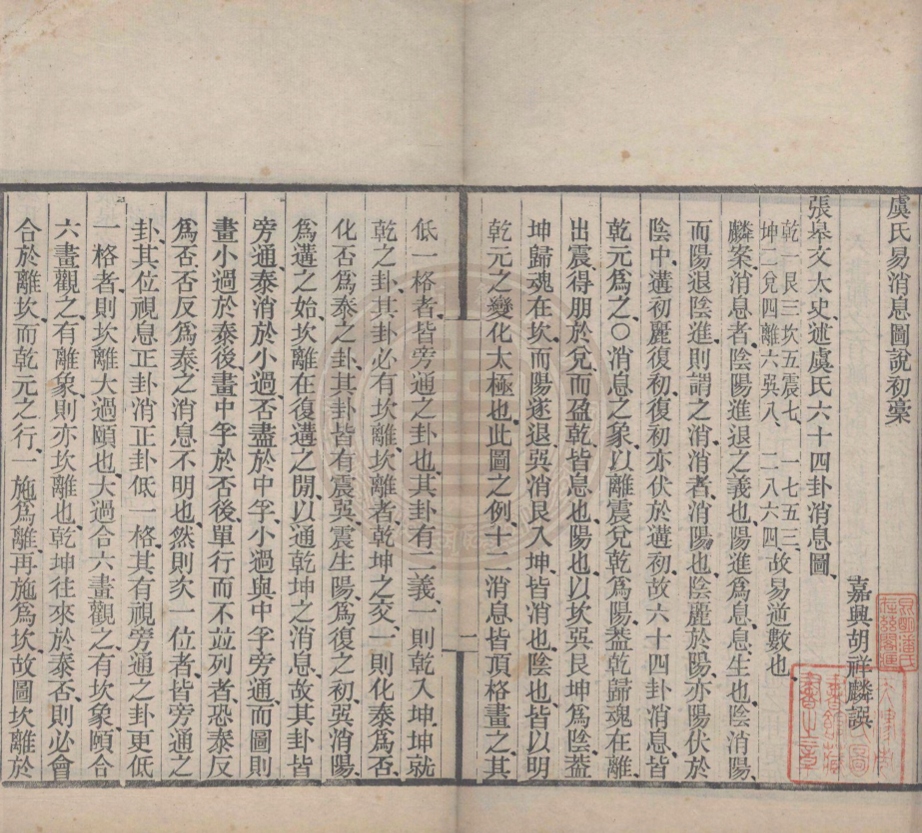 虞氏易消息圖說初稾
嘉興胡祥麟譔
張皋文太史述虞氏六十四卦消息圖
乾一艮三坎五震七、一七五三、故易逆數也、
坤二兌四離六巽八、二八六四
麟案消息者、陰陽進退之義也、陽進爲息、息、生也、陰消陽、
而陽退陰進、則謂之消、消者、消陽也、陰麗於陽、亦陽伏於
陰中、遘初麗復初、復初亦伏於遘初、故六十四卦消息、皆
乾元爲之、〇消息之象、以離震兌乾爲陽、葢乾歸魂在離、
出震、得朋於兌、而盈乾、皆息也、陽也、以坎巽艮坤爲陰、葢
坤歸魂在坎、而陽遂退、巽消艮入坤、皆消也、陰也、皆以明
乾元之變化太極也、此圖之例、十二消息皆頂格畫之、其
低一格者、皆旁通之卦也、其卦有二義、一則乾入坤、坤就
乾之卦、其卦必有坎離、坎離者、乾坤之交、一則化泰爲否、
化否爲泰之卦、其卦皆有震巽、震生陽、爲復之初、巽消陽、
爲遘之始、坎離在復遘之閒、以通乾坤之消息、故其卦皆
旁通、泰消於小過、否盡於中孚、小過與中孚旁通、而圖則
畫小過於泰後、畫中孚於否後、單行而不竝列者、恐泰反
爲否、否反爲泰、之消息不明也、然則次一位者、皆旁通之
卦、其位視息正卦消正卦低一格、其有視旁通之卦更低
一格者、則坎離大過頤也、大過合六畫觀之、有坎象、頤合
六畫觀之、有離象、則亦坎離也、乾坤往來於泰否、則必會
合於離坎、而乾元之行、一施爲離、再施爲坎、故圖坎離於
一